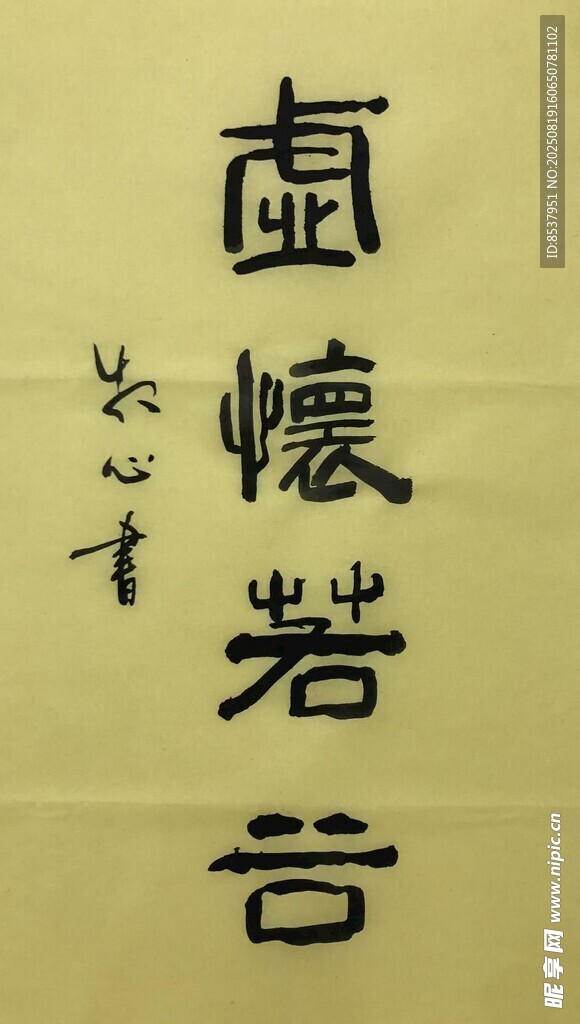 虚懷若谷
心書
ID:8537951 NO:20250819160650781102
昵享网 www.nipic.cn